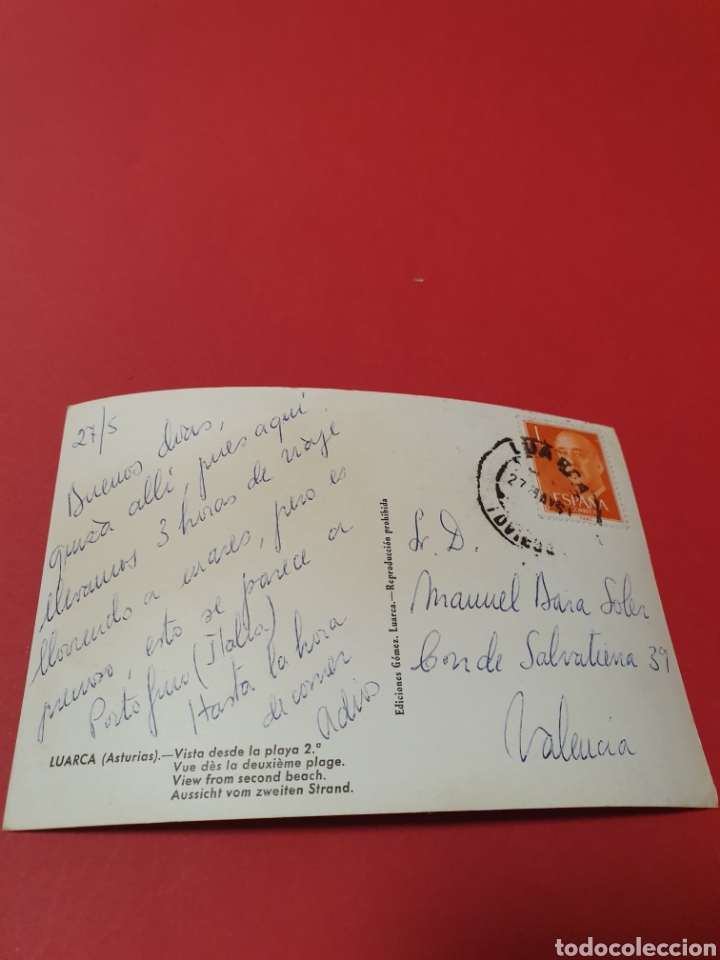 27/5
Buenos dias,
quizá allí, pues aquí
llevamos 3 horas de viaje
lloviendo a mares, pero es
precioso, esto se parece a
Portofino (Italia)
Hasta la hora
de comer
Adios
LUARCA (Asturias).—Vista desde la playa 2.ª
Vue dès la deuxième plage.
View from second beach.
Aussicht vom zweiten Strand.
Ediciones Gómez. Luarca.—Reproducción prohibida
LUARCA
27 MAY
(OVIEDO)
ESPAÑA
CORREOS
Sr. D.
Manuel Bara Soler
Conde Salvatierra 39
Valencia
todocoleccion